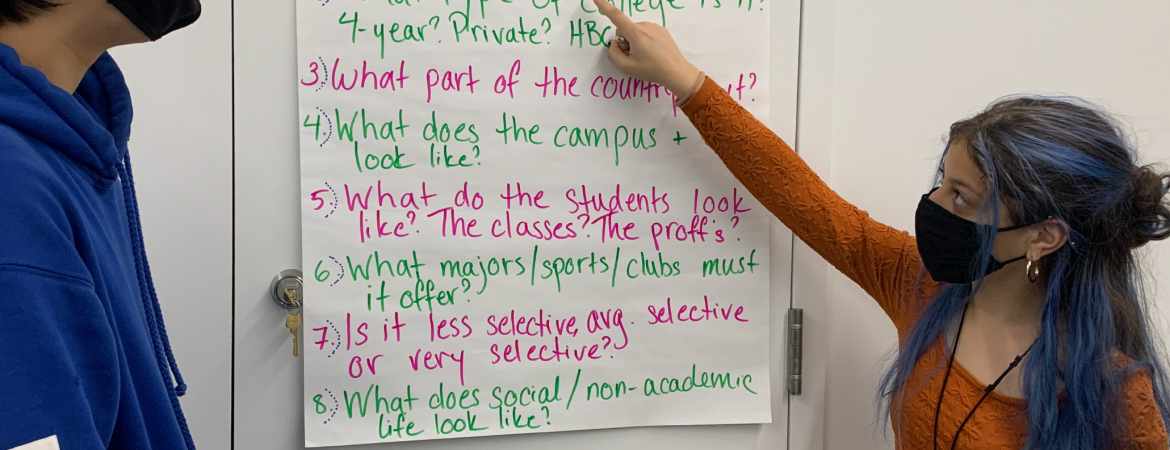 Type of College is it?
4-year? Private? HBC
3.) What part of the country it?
4.) What does the campus +
look like?
5.) What do the students look
like? The classes? The proff's?
6.) What majors/sports/clubs must
it offer?
7.) Is it less selective, avg. selective
or very selective?
8.) What does social/non-academic
life look like?